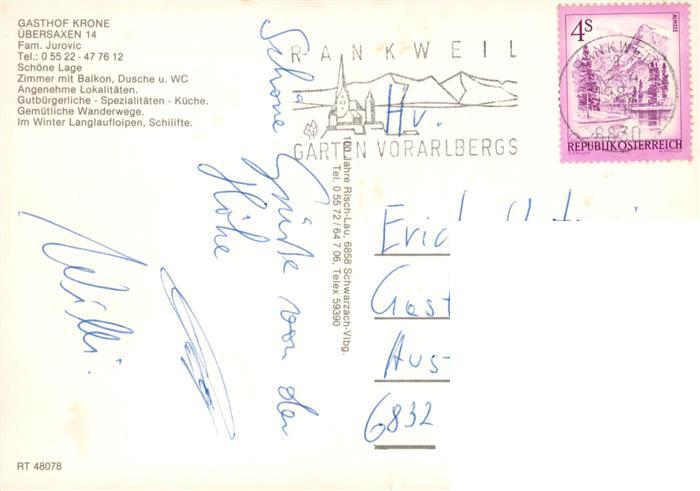 GASTHOF KRONE
ÜBERSAXEN 14
Fam. Jurovic
Tel.: 0 55 22 - 47 76 12
Schöne Lage
Zimmer mit Balkon, Dusche u. WC
Angenehme Lokalitäten.
Gutbürgerliche - Spezialitäten - Küche.
Gemütliche Wanderwege.
Im Winter Langlaufloipen, Schilifte.
RANKWEIL
GARTEN VORARLBERGS
4S
ALMSEE
6830
REPUBLIK ÖSTERREICH
Schöne Grüße von der
Höhe
Willi.
100 Jahre Risch-Lau, 6858 Schwarzach-Vlbg.
Tel. 0 55 72/64 7 06, Telex 59390
Hv.
Erich
Gast
Aus
6832
RT 48078